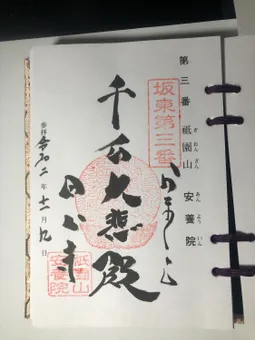 第三番 祇園山 安養院
ぎおんざん あんよういん
坂東第三番
千手大悲殿
田代寺
祇園山
安養院
参拝 令和二年十一月九日